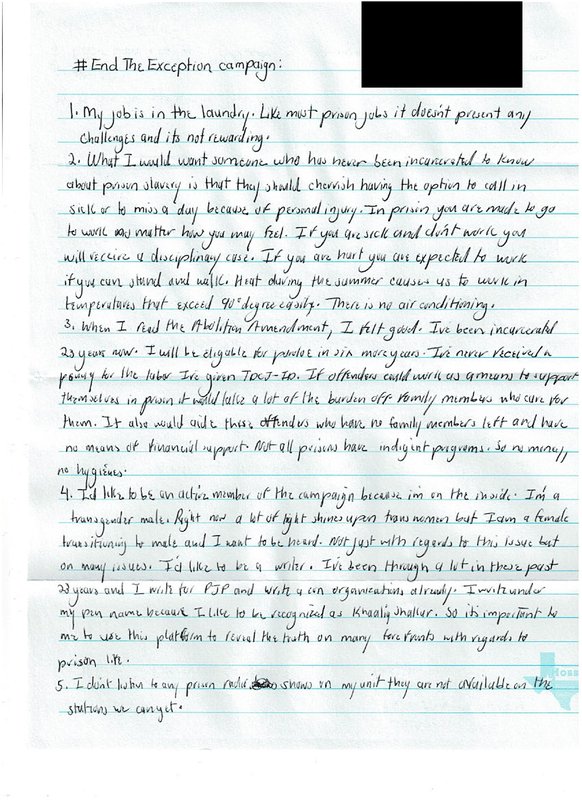 # End The Exception campaign:
1. My job is in the laundry. Like most prison jobs it doesn't present any
challenges and its not rewarding.
2. What I would want someone who has never been incarcerated to know
about prison slavery is that they should cherish having the option to call in
sick or to miss a day because of personal injury. In prison you are made to go
to work no matter how you may feel. If you are sick and don't work you
will receive a disciplinary case. If you are hurt you are expected to work
if you can stand and walk. Heat during the summer causes us to work in
temperatures that exceed 90° degree easily. There is no air conditioning.
3. When I read the Abolition Amendment, I felt good. I've been incarcerated
23 years now. I will be eligable for parole in six more years. I've never received a
penny for the labor I've given TDCJ-ID. If offenders could work as a means to support
themselves in prison it would take a lot of the burden off family members who care for
them. It also would aide those offenders who have no family members left and have
no means of financial support. Not all prisons have indigent programs. So no money,
no hygienes.
4. I'd like to be an active member of the campaign because im on the inside. I'm a
transgender male. Right now a lot of light shines upon trans women but I am a female
transitioning to male and I want to be heard. Not just with regards to this issue but
on many issues. I'd like to be a writer. I've been through a lot in these past
23 years and I write for PJP and write a on organizations already. I write under
my pen name because I like to be recognized as Khaaliq Shakur. So it's important to
me to use this platform to reveal the truth on many forefronts with regards to
prison life.
5. I don't listen to any prison radio shows on my unit they are not available on the
stations we can get.